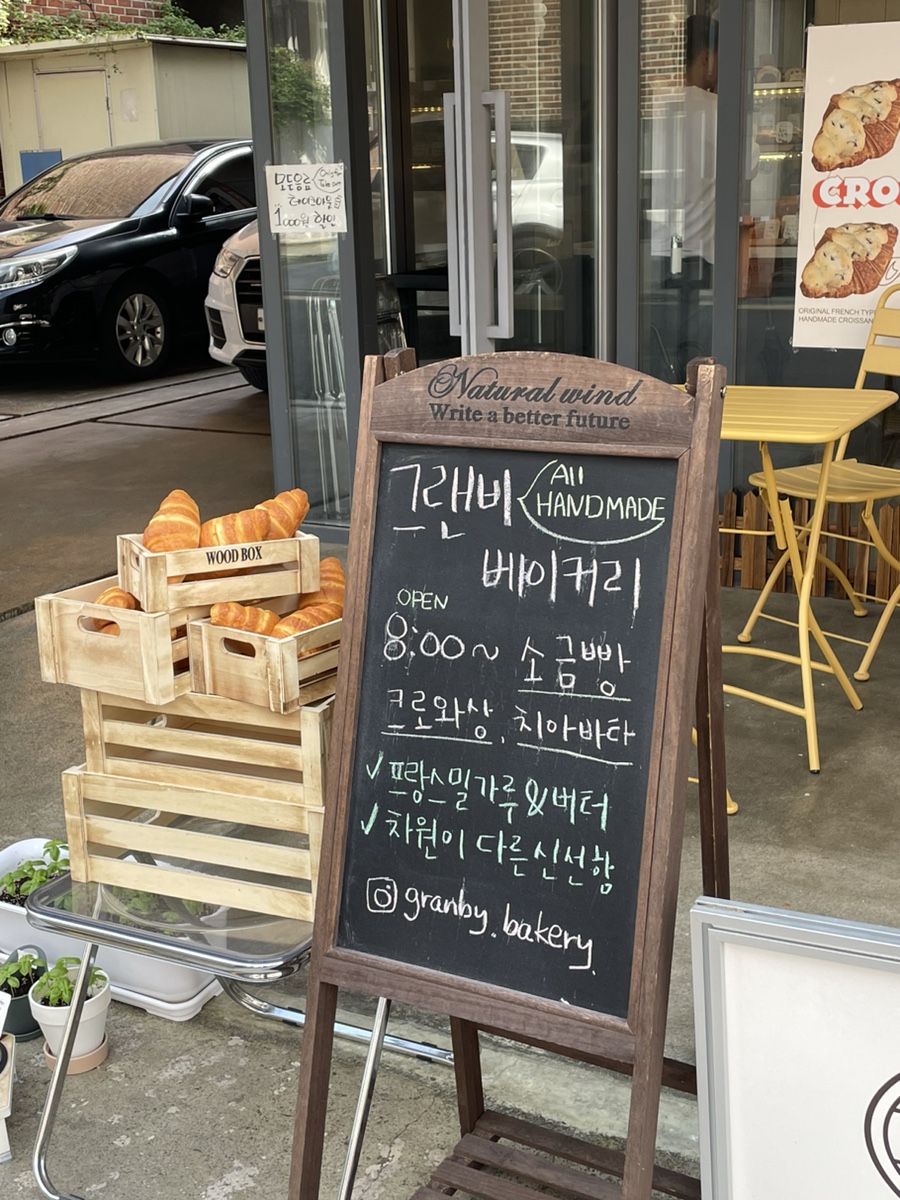 모든음료 Only for Take out
테이크아웃
1000원 할인
CRO
ORIGINAL FRENCH TYP
HANDMADE CROISSAN
Natural wind
Write a better future
그랜비 All HANDMADE
베이커리
OPEN
8:00~ 소금빵
크로와상, 치아바타
✓프랑스밀가루&버터
✓차원이 다른신선함
granby.bakery
WOOD BOX